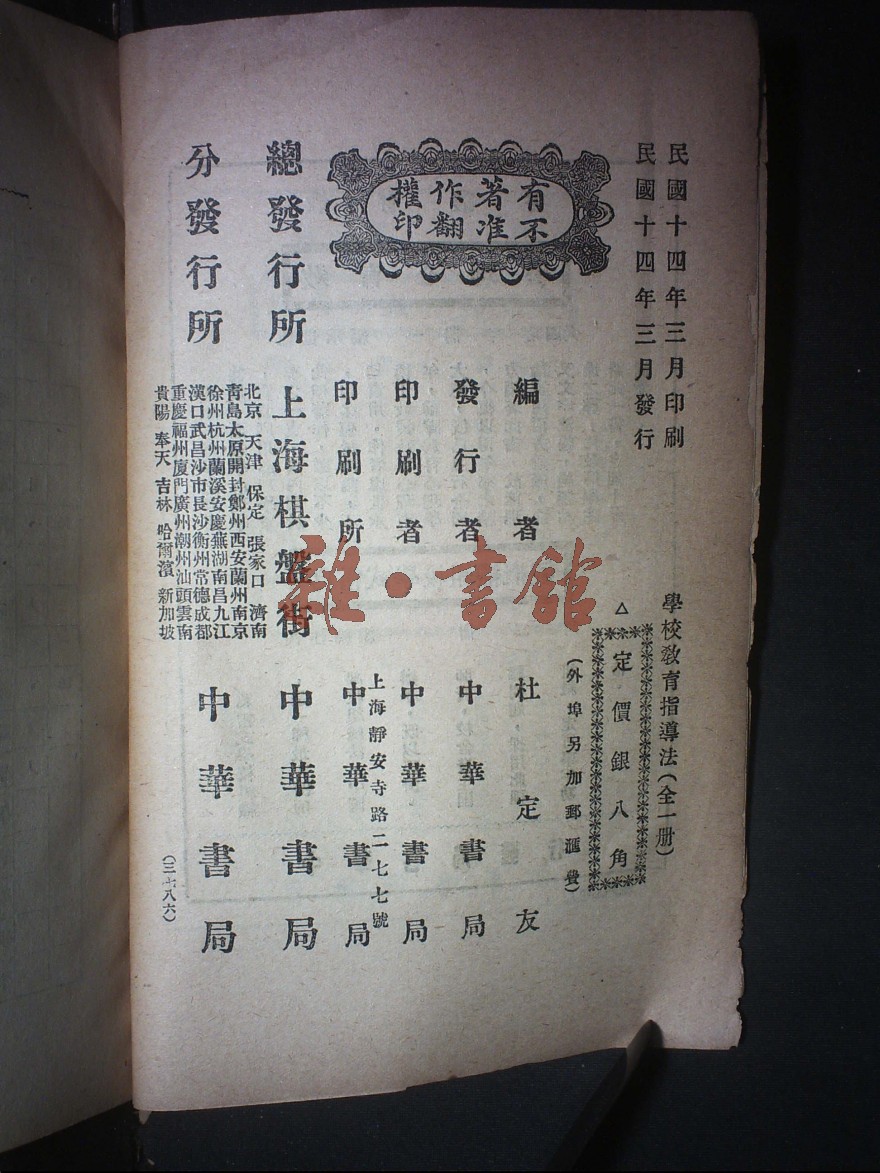 民國十四年三月印刷
民國十四年三月發行
學校教育指導法(全一册)
△定價銀八角
(外埠另加郵滙費)
有著作權
不准翻印
編者 杜定友
發行者 中華書局
印刷者 中華書局
上海靜安寺路二七七號
印刷所 中華書局
總發行所 上海棋盤街 中華書局
分發行所
北京 天津 保定 張家口 濟南
青島太原開封鄭州西安蘭州南京
徐州杭州蘭溪安慶蕪湖南昌九江
漢口武昌沙市長沙衡州常德成都
重慶福州廈門廣州潮州汕頭雲南
貴陽 奉天 吉林 哈爾濱 新加坡
中華書局
(三七八六)
雜·書館